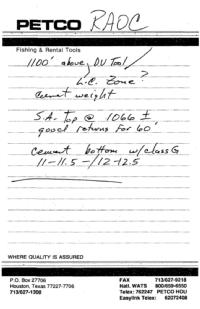 PETCO RAOC
Fishing & Rental Tools
1100' above DV Tool
L.C. Zone?
Cement weight
S.A. Top @ 1066 ±
good returns for 60'
Cement bottom w/class G
11-11.5 - /12-12.5
WHERE QUALITY IS ASSURED
P.O. Box 27706
Houston, Texas 77227-7706
713/627-1308
FAX 713/627-9218
Natl. WATS 800/659-6550
Telex: 762247 PETCO HOU
Easylink Telex: 62072408